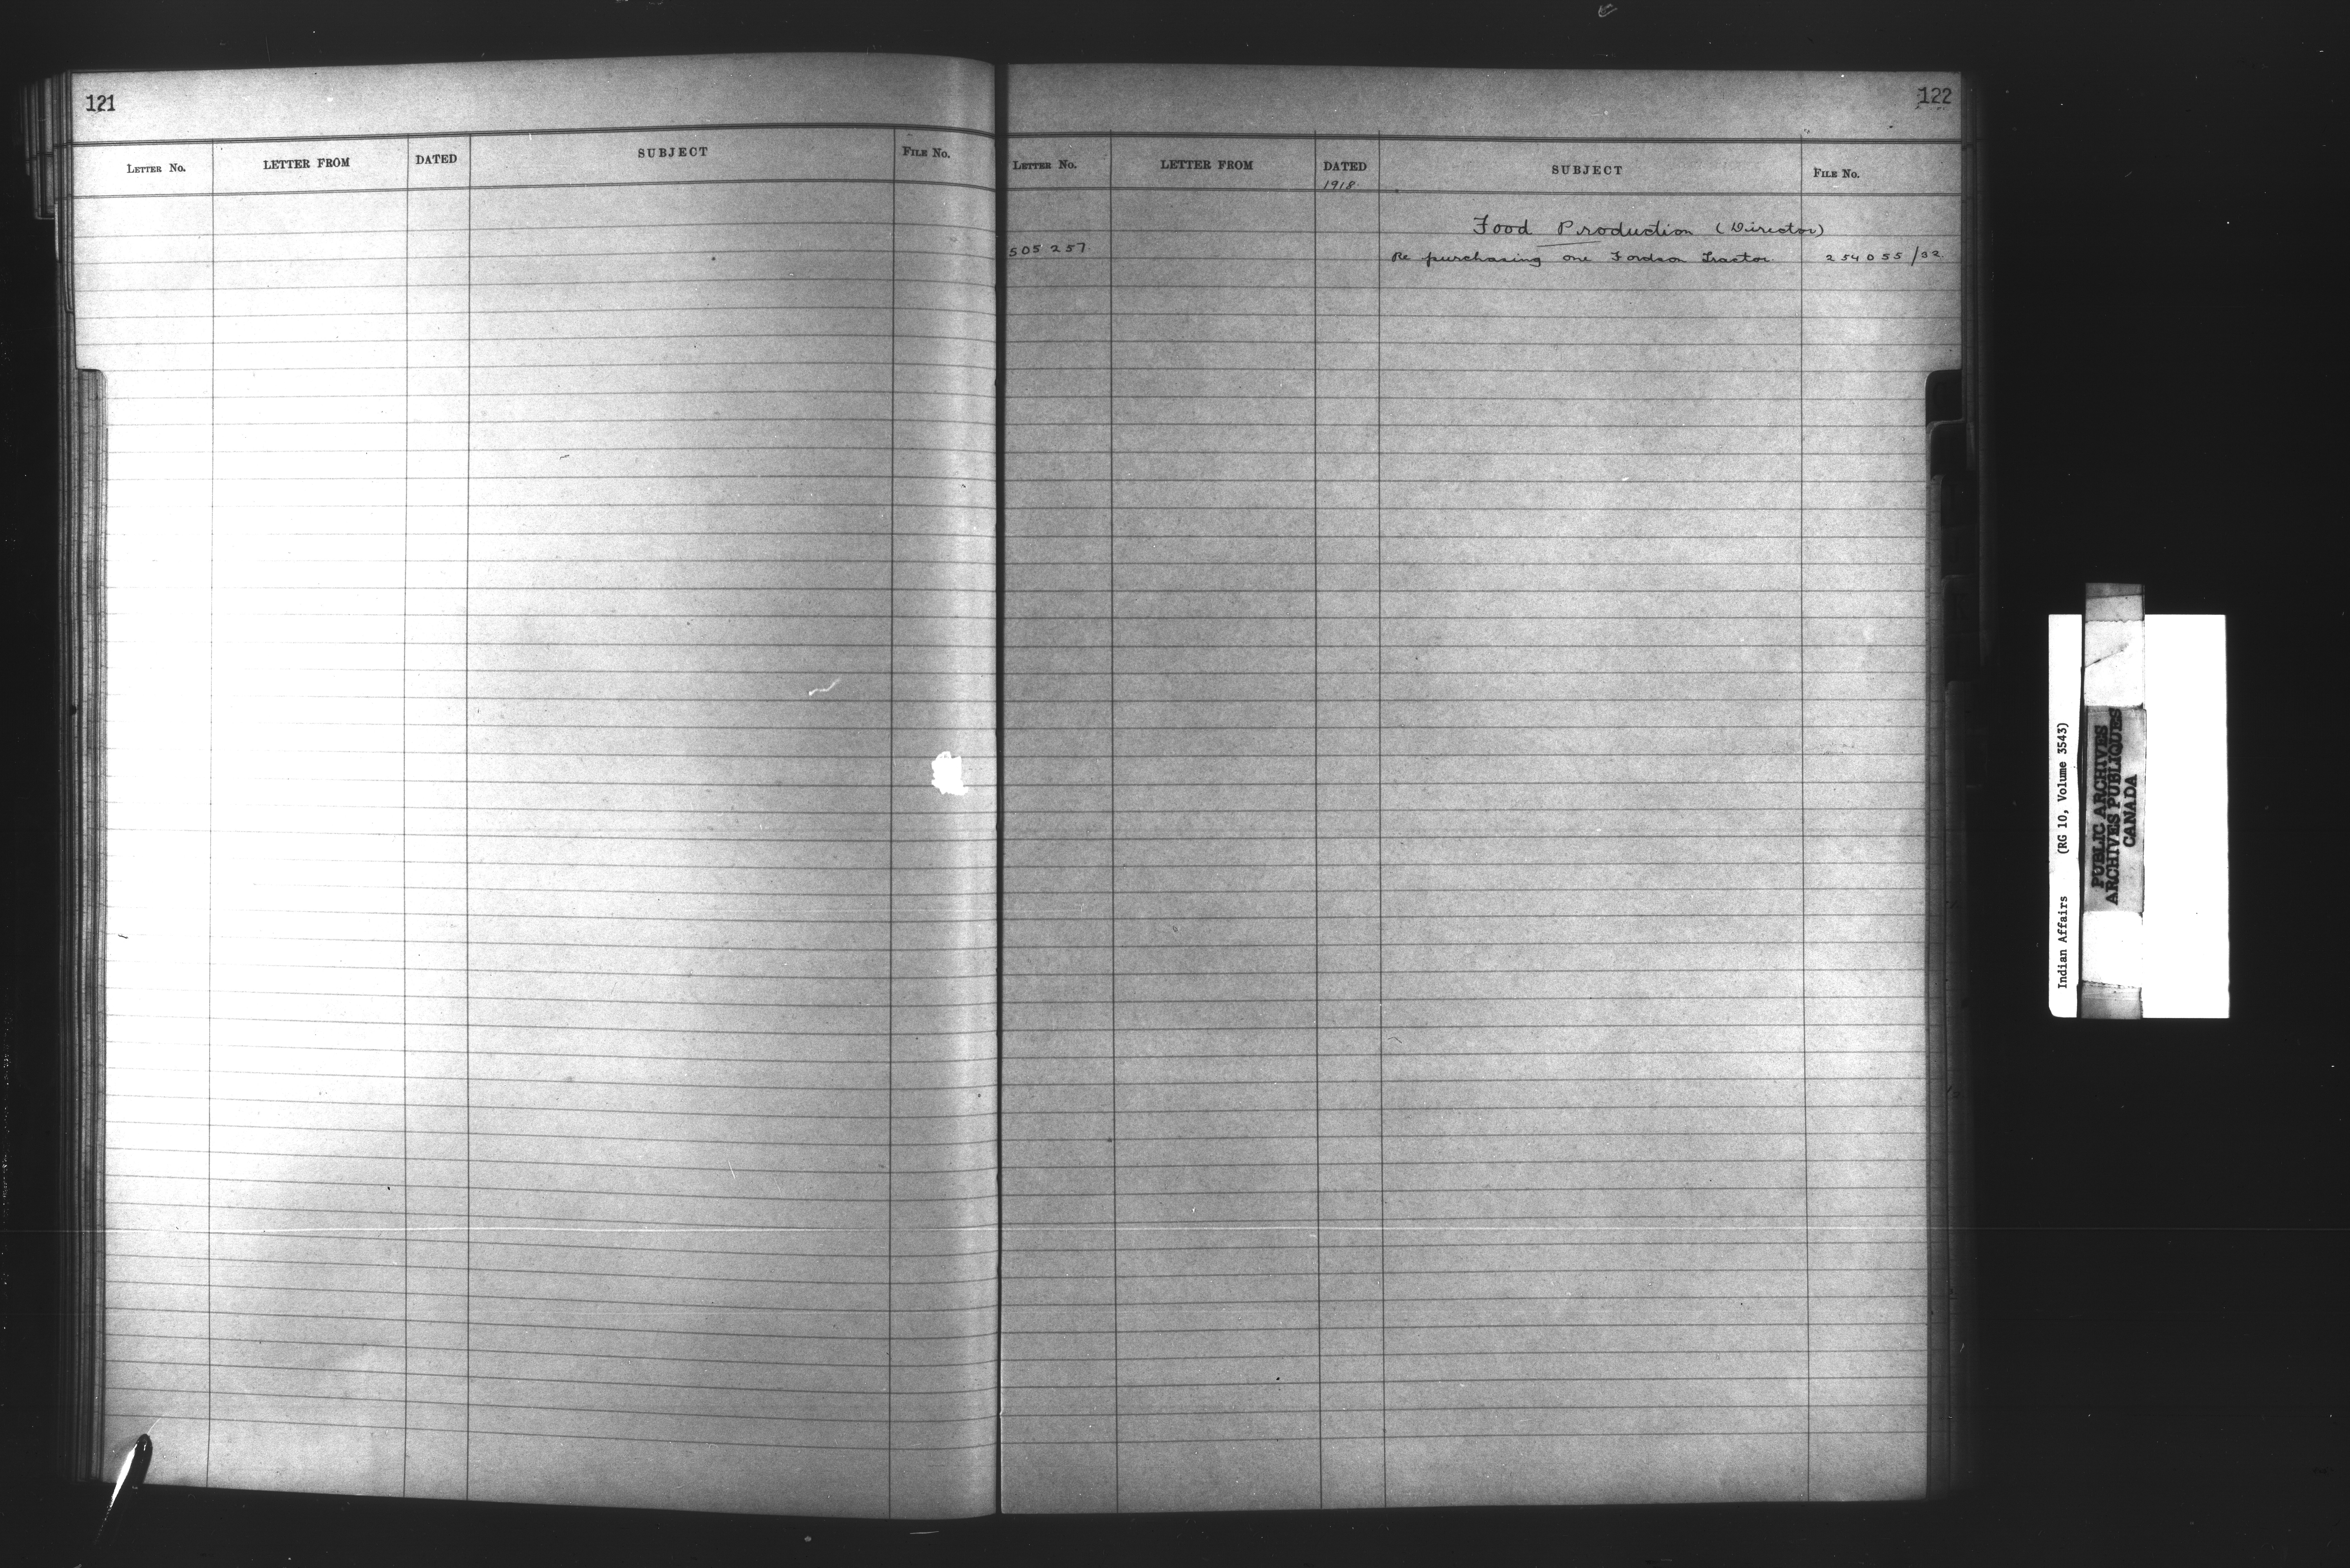 121
LETTER No. LETTER FROM DATED SUBJECT FILE No.
122
LETTER No. LETTER FROM DATED SUBJECT FILE No.
1918
Food Production (Director)
505257 Re purchasing one Fordson Tractor 254055/32
Indian Affairs (RG 10, Volume 3543)
PUBLIC ARCHIVES
ARCHIVES PUBLIQUES
CANADA